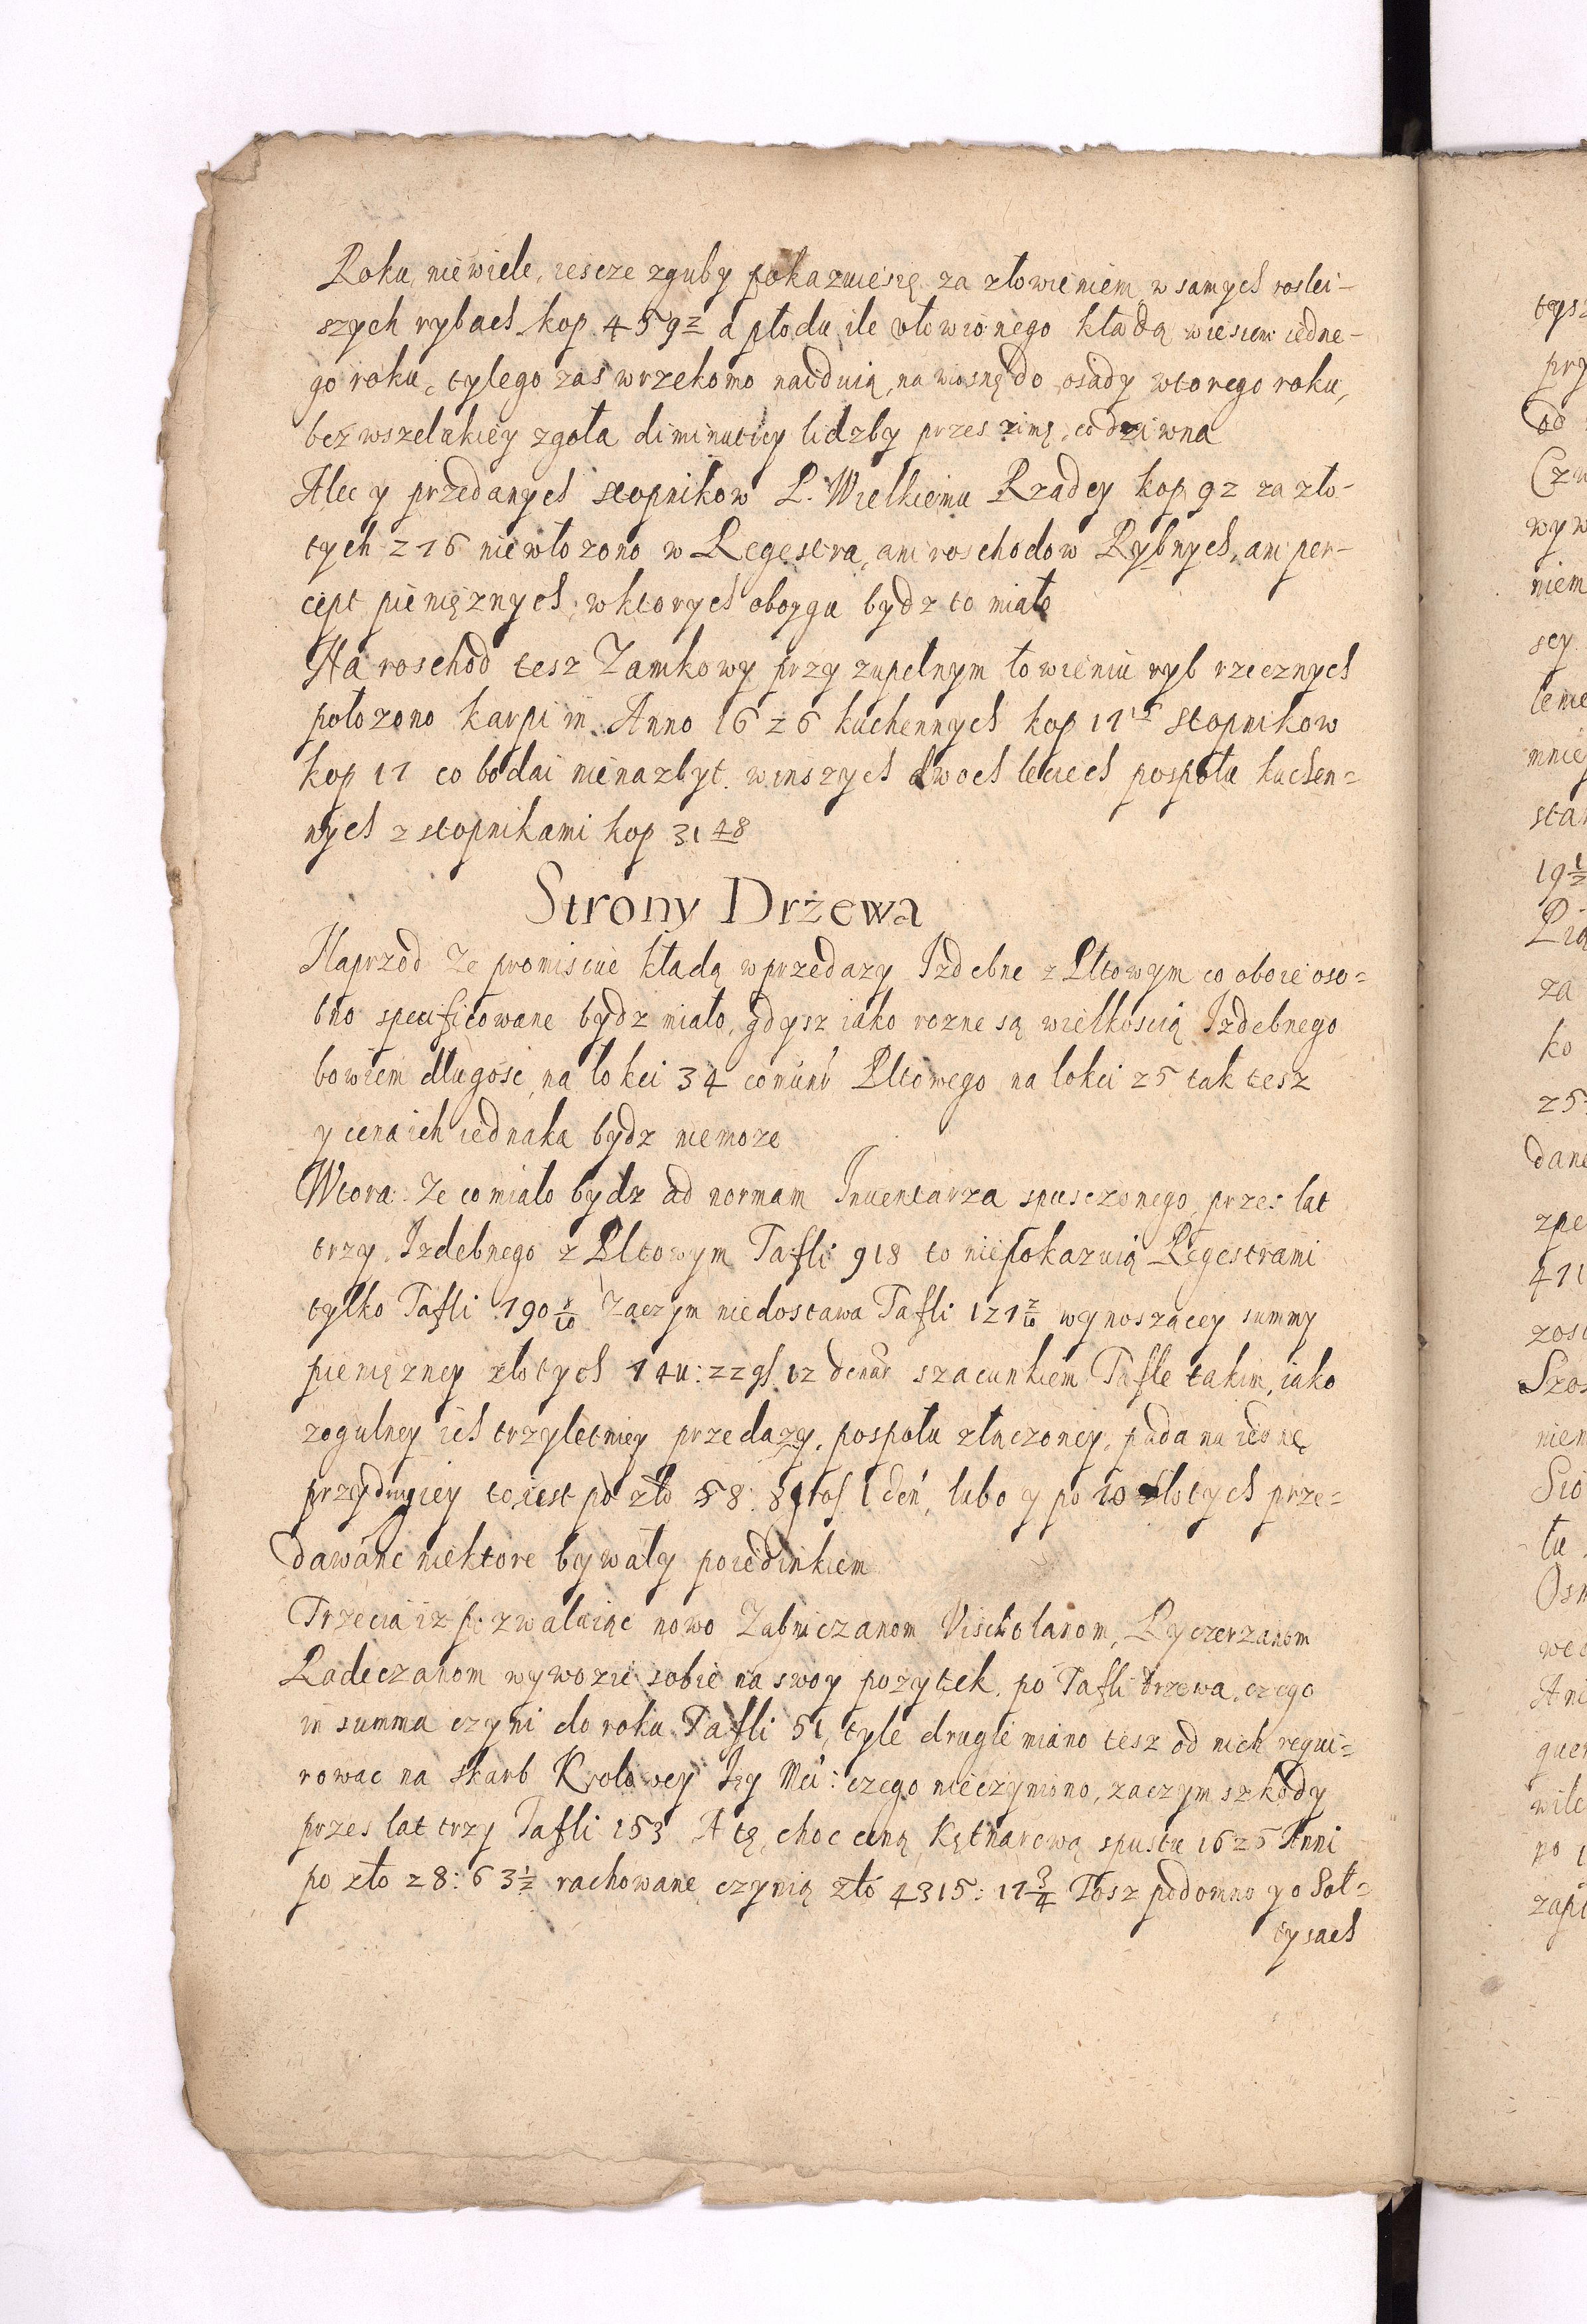 Roku, niewiele, iescze zguby pokazuiesię za złowieniem w samych roslei-
szych rybach kop 459z a płodu ile ułowionego kładą wiesieni iedne-
go roku, tylego zas wrzekomo naiduią, na wiosnę do osady wtorego roku,
bez wszelakiey zgoła diminutiey lidzby przes zimę, co dziwna
Alec y przedanych stopnikow P. Wielkiemu Rządcy kop 9z za zło-
tych z16 niewłozono w Regestra, ani roschodow Rybnych, ani per-
cept pienięznych, wktorych oboygu bydz to miało
Na roschod tesz Zamkowy przy zupełnym łowieniu ryb rzecznych
połozono karpi in Anno 16z6 kuchennych kop 11 stopnikow
kop 11 co bodai nienazbyt. winszych dwoch leciech pospołu kuchen=
nych z stopnikami kop 31 48
Strony Drżewa
Naprzod Ze promiscue kładą wprzedazy Izdebne z Pltowym co oboie oso=
bno specificowane bydz miało, gdysz iako rozne są wielkoscią Izdebnego
bowiem długosc na łokci 34 Pltowego na łokci z5 tak tesz
y cena ich iednaka bydz niemoze
Wtora: Ze comiało bydz ad normam Inuentarza spusczonego, przes lat
trzy Izdebnego z Pltowym Tafli 918 to niepokazuią Regestrami
tylko Tafli 190 Zaczym niedostawa Tafli 1z1 wynoszącey summy
pienięzney złotych zzgł 1z denar szacunkiem Tafle takim, iako
zogulney ich trzyletniey przedazy, pospołu złączoney, pada na iednę
przydrugiey toiest po zło 58: 8 gros 1 den, lubo y po 10 złotych prze=
dawane niektore bywały poiedinkiem
Trzecia iz pozwalaiąc nowo Zabniczanom Vischolanom, Ryczerzanom
Radeczanom wywozic sobie na swoy pozytek po Tafli drzewa, czego
in summa czyni do roku Tafli 51, tyle drugie miano tesz od nich requi=
rowac na skarb Krolowey Iey Mci: czego nieczyniono, zaczym szkody
przes lat trzy Tafli 153 A tą choc ceną Kętnarową spustu 16z5 Anni
po zło z8: 6 3½ rachowane czynią zło 4315: 11¾ Tosz podomno y o Soł=
tysach
tysz
pry
od
Cz
wyw
niem
sey
mnie
star
19½
za
ko
z5
dane
zpe
411
niem
tu
Ani
po
zapi